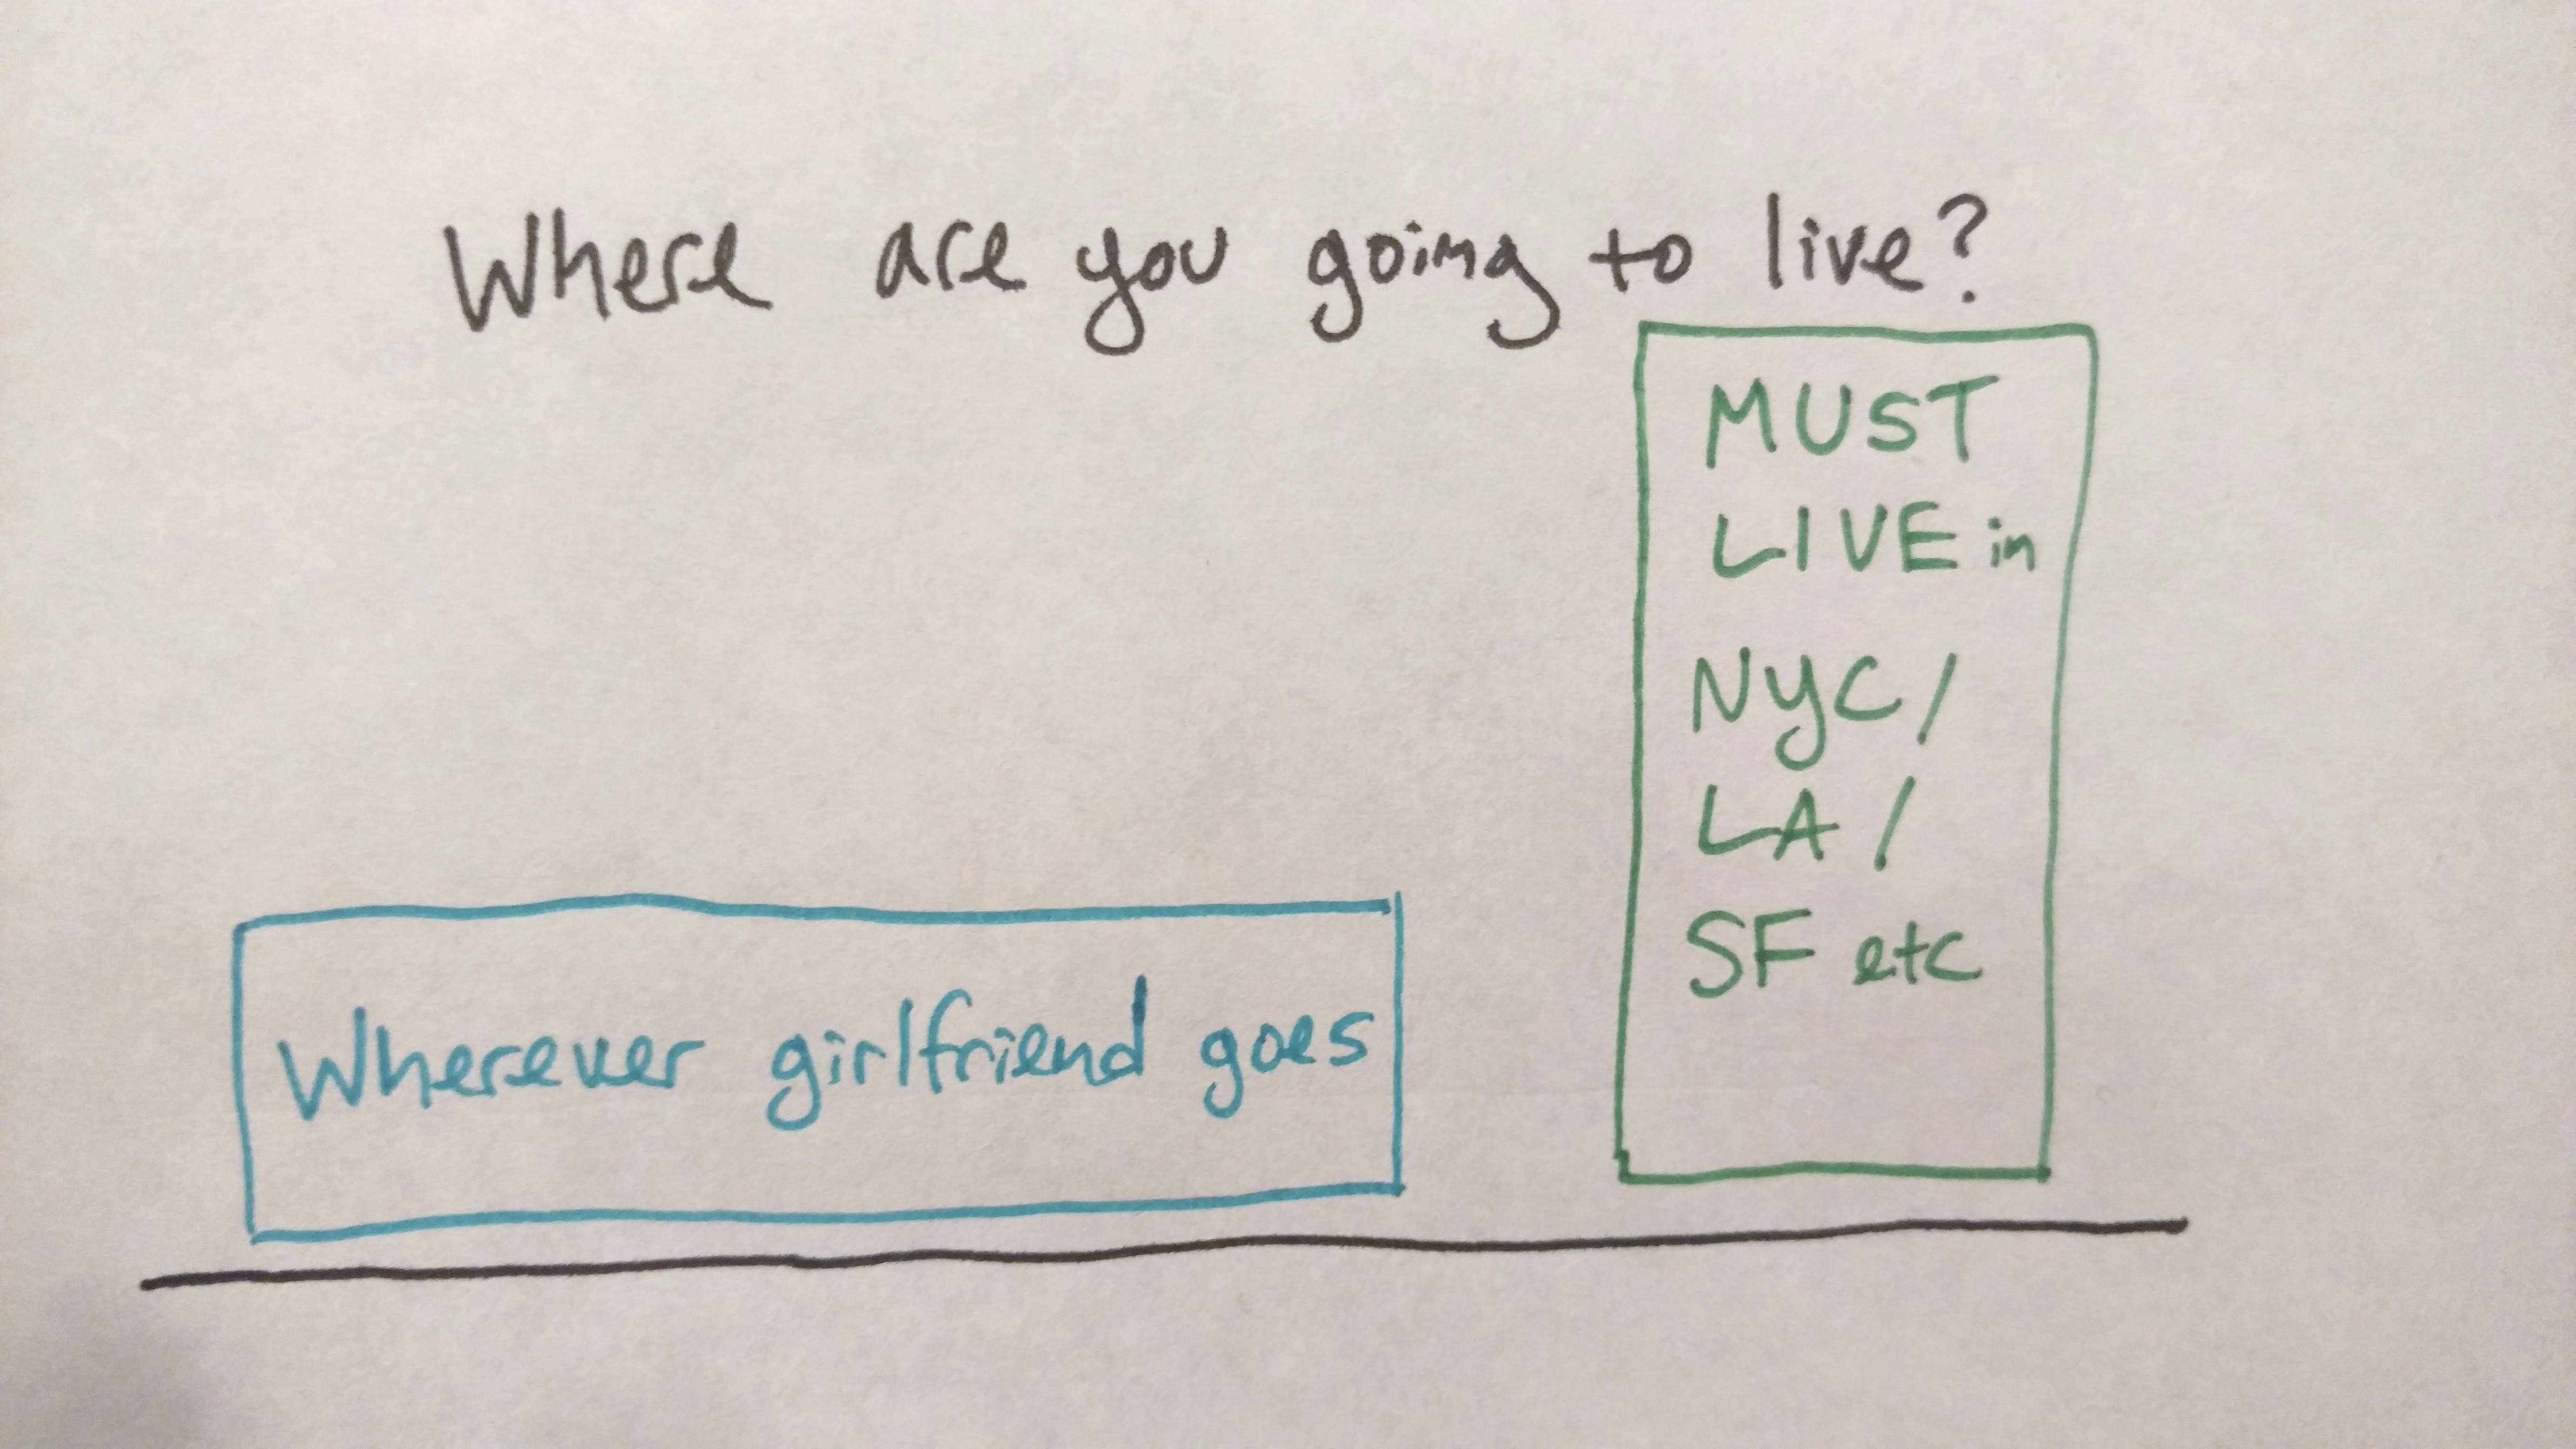 Where are you going to live?
MUST
LIVE in
NYC/
LA/
SF etc
Wherever girlfriend goes